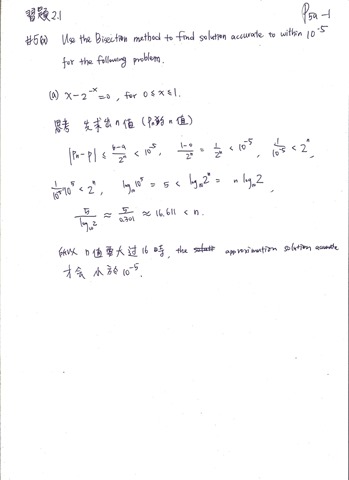 習題2.1
P5a-1
#5(a) Use the Bisection method to find solution accurate to within 10^-5
for the following problem.
(a) x-2^-x=0, for 0≤x≤1.
思考 先求出n值 (Pn的n值)
|Pn-P| ≤ b-a/2^n < 10^-5, 1-0/2^n = 1/2^n < 10^-5, 1/10^-5 < 2^n,
10^5 < 2^n, log10 10^5 = 5 < log10 2^n = n log10 2
5/log10 2 ≈ 5/0.301 ≈ 16.611 < n.
n值要大过16時, the approximation solution accurate
才会小於10^-5.